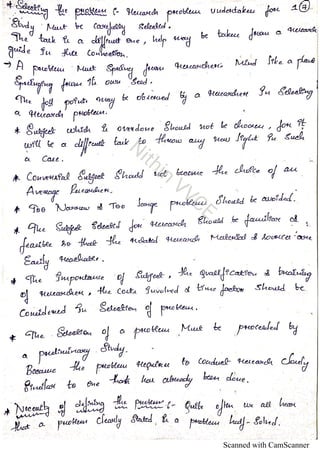 * Selecting the problem :- Research problem undertaken for 1 (7)
Study Must be Carefully Selected.
The task is a difficult one, help may be taken from a research
guide In this Connection.
→ A problem Must Spring from researchers Mind like a plant
Springing from its own Seed.
The foll points may be observed by a researcher In Selecting
a research problem.
* Subject which is overdone Should not be choosen, for it
will be a difficult task to throw any new light In Such
a Case.
* Controversial Subject Should not become the choice of an
Average Researcher.
* Too Narrow & Too large problem, Should be avoided.
* The Subject Selected for research Should be familiar &
feasible So that the related research Material & Sources are
Easily reachable.
* The Importance of Subject, the qualification & training
of researcher, the Costs Involved & time factor Should be
Considered In Selection of problem.
* The Selection of a problem Must be preceeded by
a preliminary Study.
Because the problem requires to Conduct research Closely
Similar to one that has already been done.
* Necessity of defining the problem :- Quite often we all hear
that a problem Clearly Stated, is a problem half-Solved.
Nithin VV
Scanned with CamScanner